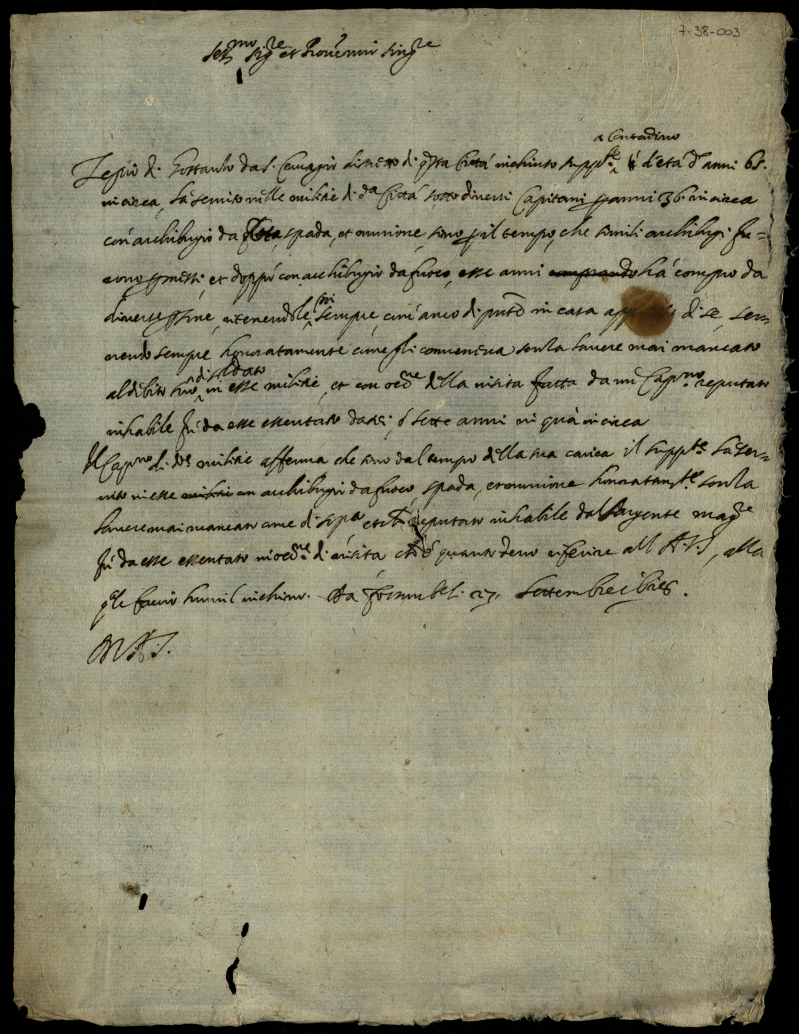 7-38-003
Ser.mo Sig.re et Prone mio Sing.re
è Contadino
di q.sta Città inchinto supp.te è d'età d'anni 65.
in circa, hà servito nelle militie di d.a Città sotto diversi Capitani p anni 36 in circa
con archibugio da spada, et munione, sino p il tempo, che simili archibugi fu-
rono et doppò con archibugio da fuoco, esse anni hà compro da
diverse sempre com' anco di pnte in casa di se, ser-
vendo sempre honoratamente come se gli conveniva senza havere mai mancato
di soldato
al debito suo in esse militie, et con occ.ne della visita fatta da un Cap.no reputato
inhabile fù da esse essentato da sei, ò sette anni in quà in circa
Il Cap.no di d.e militie afferma che sino dal tempo della sua carica il supp.te hà ser-
vito in esse militie con archibugio da fuoco, spada, et munione honoratam.te senza
havere mai mancato come di sop.a et reputato inhabile dal Sargente mag.re
fù da esse essentato in occ.ne di visita ch'è quanto devo riferire all A.V.S, alla
q.le faccio humil inchino. Da li 27 Settembre
D.V.A.S.